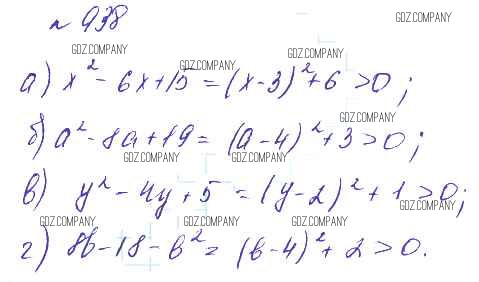 n 938
GDZ.COMPANY
GDZ.COMPANY GDZ.COMPANY GDZ.COMPANY
а) x² - 6x + 15 = (x - 3)² + 6 > 0;
GDZ.COMPANY
б) a² - 8a + 19 = (a - 4)² + 3 > 0;
GDZ.COMPANY GDZ.COMPANY
в) y² - 4y + 5 = (y - 2)² + 1 > 0;
GDZ.COMPANY
GDZ.COMPANY GDZ.COMPANY GDZ.COMPANY
г) 8b - 18 - b² = (b - 4)² + 2 > 0.